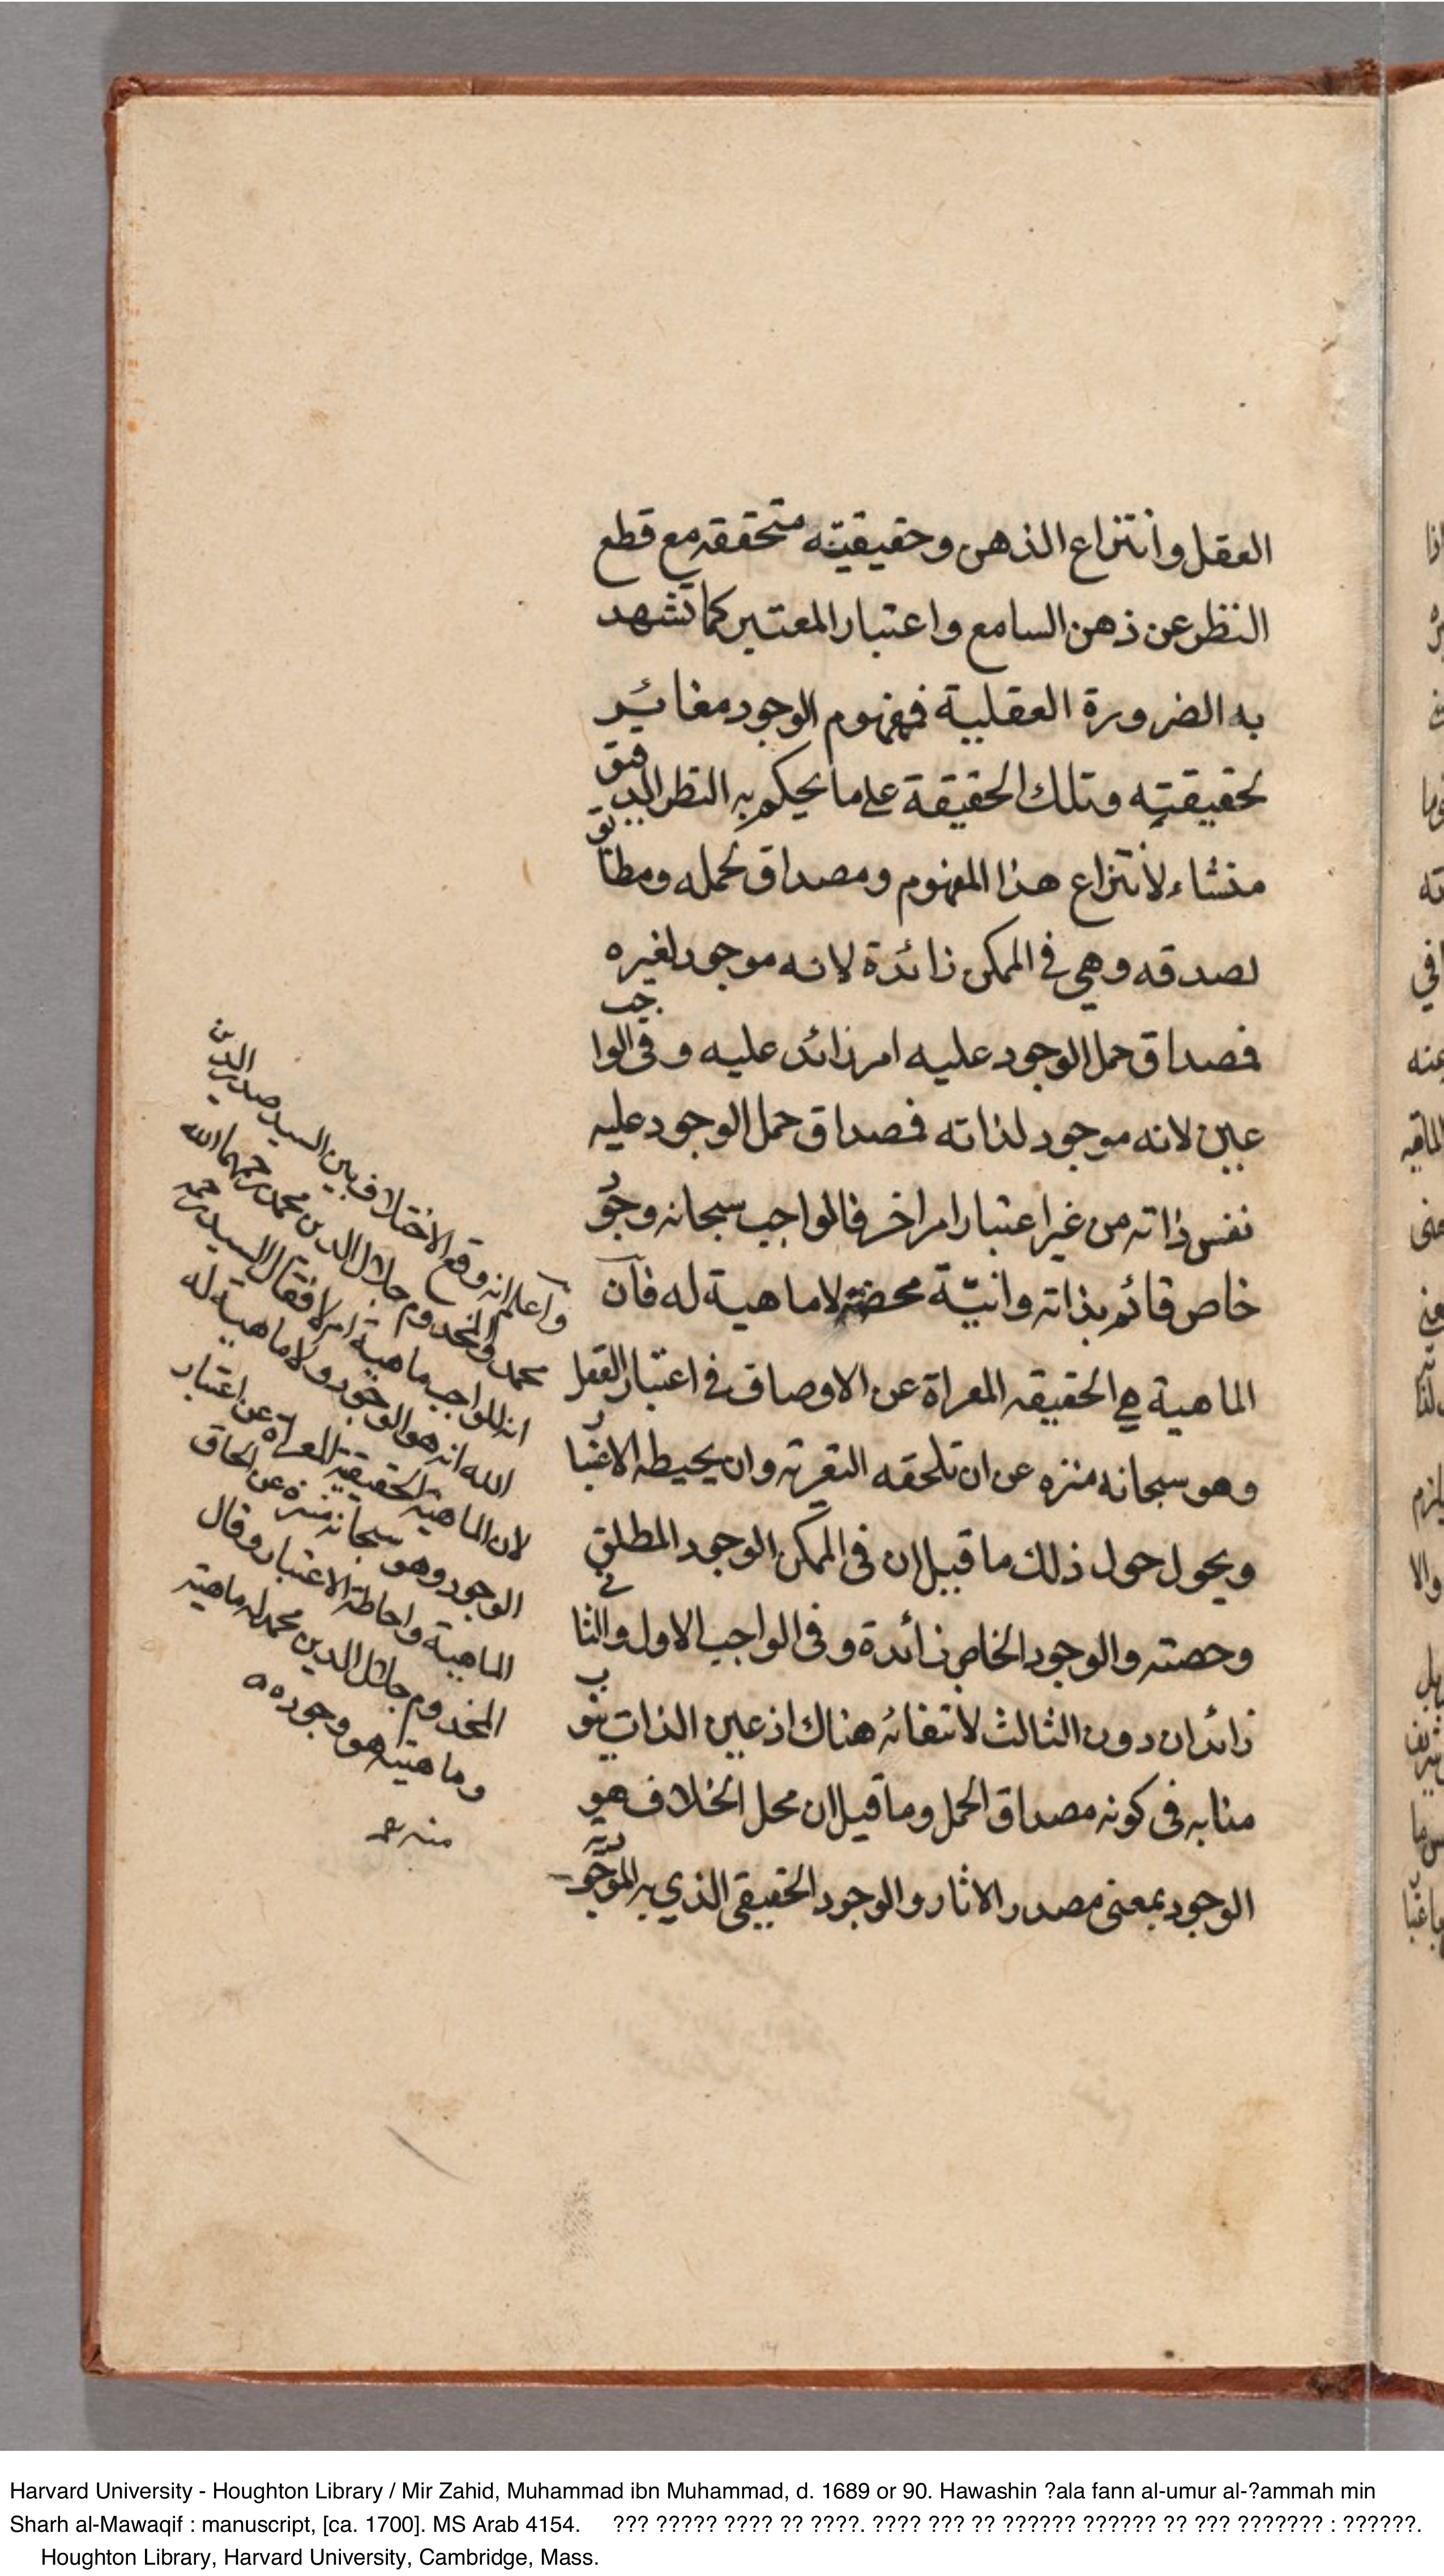 العقل وانتزاع الذهن وحقيقيته متحققه مع قطع
النظر عن ذهن السامع واعتبار المعتبر كما تشهد
به الضرورة العقلية فمفهوم الوجود مغائر
لحقيقته وتلك الحقيقة على ما يحكم به النظر الدقيق
منشاء لانتزاع هذا المفهوم ومصداق لحمله ومطابق
لصدقه وهي في الممكن زائدة لانه موجود لغيره
فمصداق حمل الوجود عليه امر زائد عليه وفى الواجب
عين لانه موجود لذاته فمصداق حمل الوجود عليه
نفس ذاته من غير اعتبار امر اخر فالواجب سبحانه وجود
خاص قائم بذاته وانيّة محضة لا ماهية له فان
الماهية هي الحقيقه المعراة عن الاوصاف في اعتبار العقل
وهو سبحانه منزه عن ان تلحقه التعرية وان يحيطه الاعتبار
ويحول حول ذلك ما قيل ان فى الممكن الوجود المطلق
وحصته والوجود الخاص زائدة وفى الواجب الاول والثاني
زائدان دون الثالث لانتفائه هناك اذ عين الذات ينوب
منابه فى كونه مصداق الحمل وما قيل ان محل الخلاف هو
الوجود بمعنى مصدر الاثار والوجود الحقيقى الذي به الموجودية
واعلم انه وقع الاختلاف بين السيد صدر الدين
محمد والمخدوم جلال الدين محمد رحمهما الله
ان للواجب ماهية ام لا فقال السيد رحمه
الله انه هو الوجود ولا ماهية له
لان الماهية الحقيقة المعراة عن اعتبار
الوجود وهو سبحانه منزه عن الحاق
الماهية واحاطة الاعتبار وقال
المخدوم جلال الدين محمد له ماهية
وماهيته هو وجوده
منه
Harvard University - Houghton Library / Mir Zahid, Muhammad ibn Muhammad, d. 1689 or 90. Hawashin ?ala fann al-umur al-?ammah min
Sharh al-Mawaqif : manuscript, [ca. 1700]. MS Arab 4154. ??? ????? ???? ?? ????. ???? ??? ?? ?????? ?????? ?? ??? ??????? : ??????.
Houghton Library, Harvard University, Cambridge, Mass.